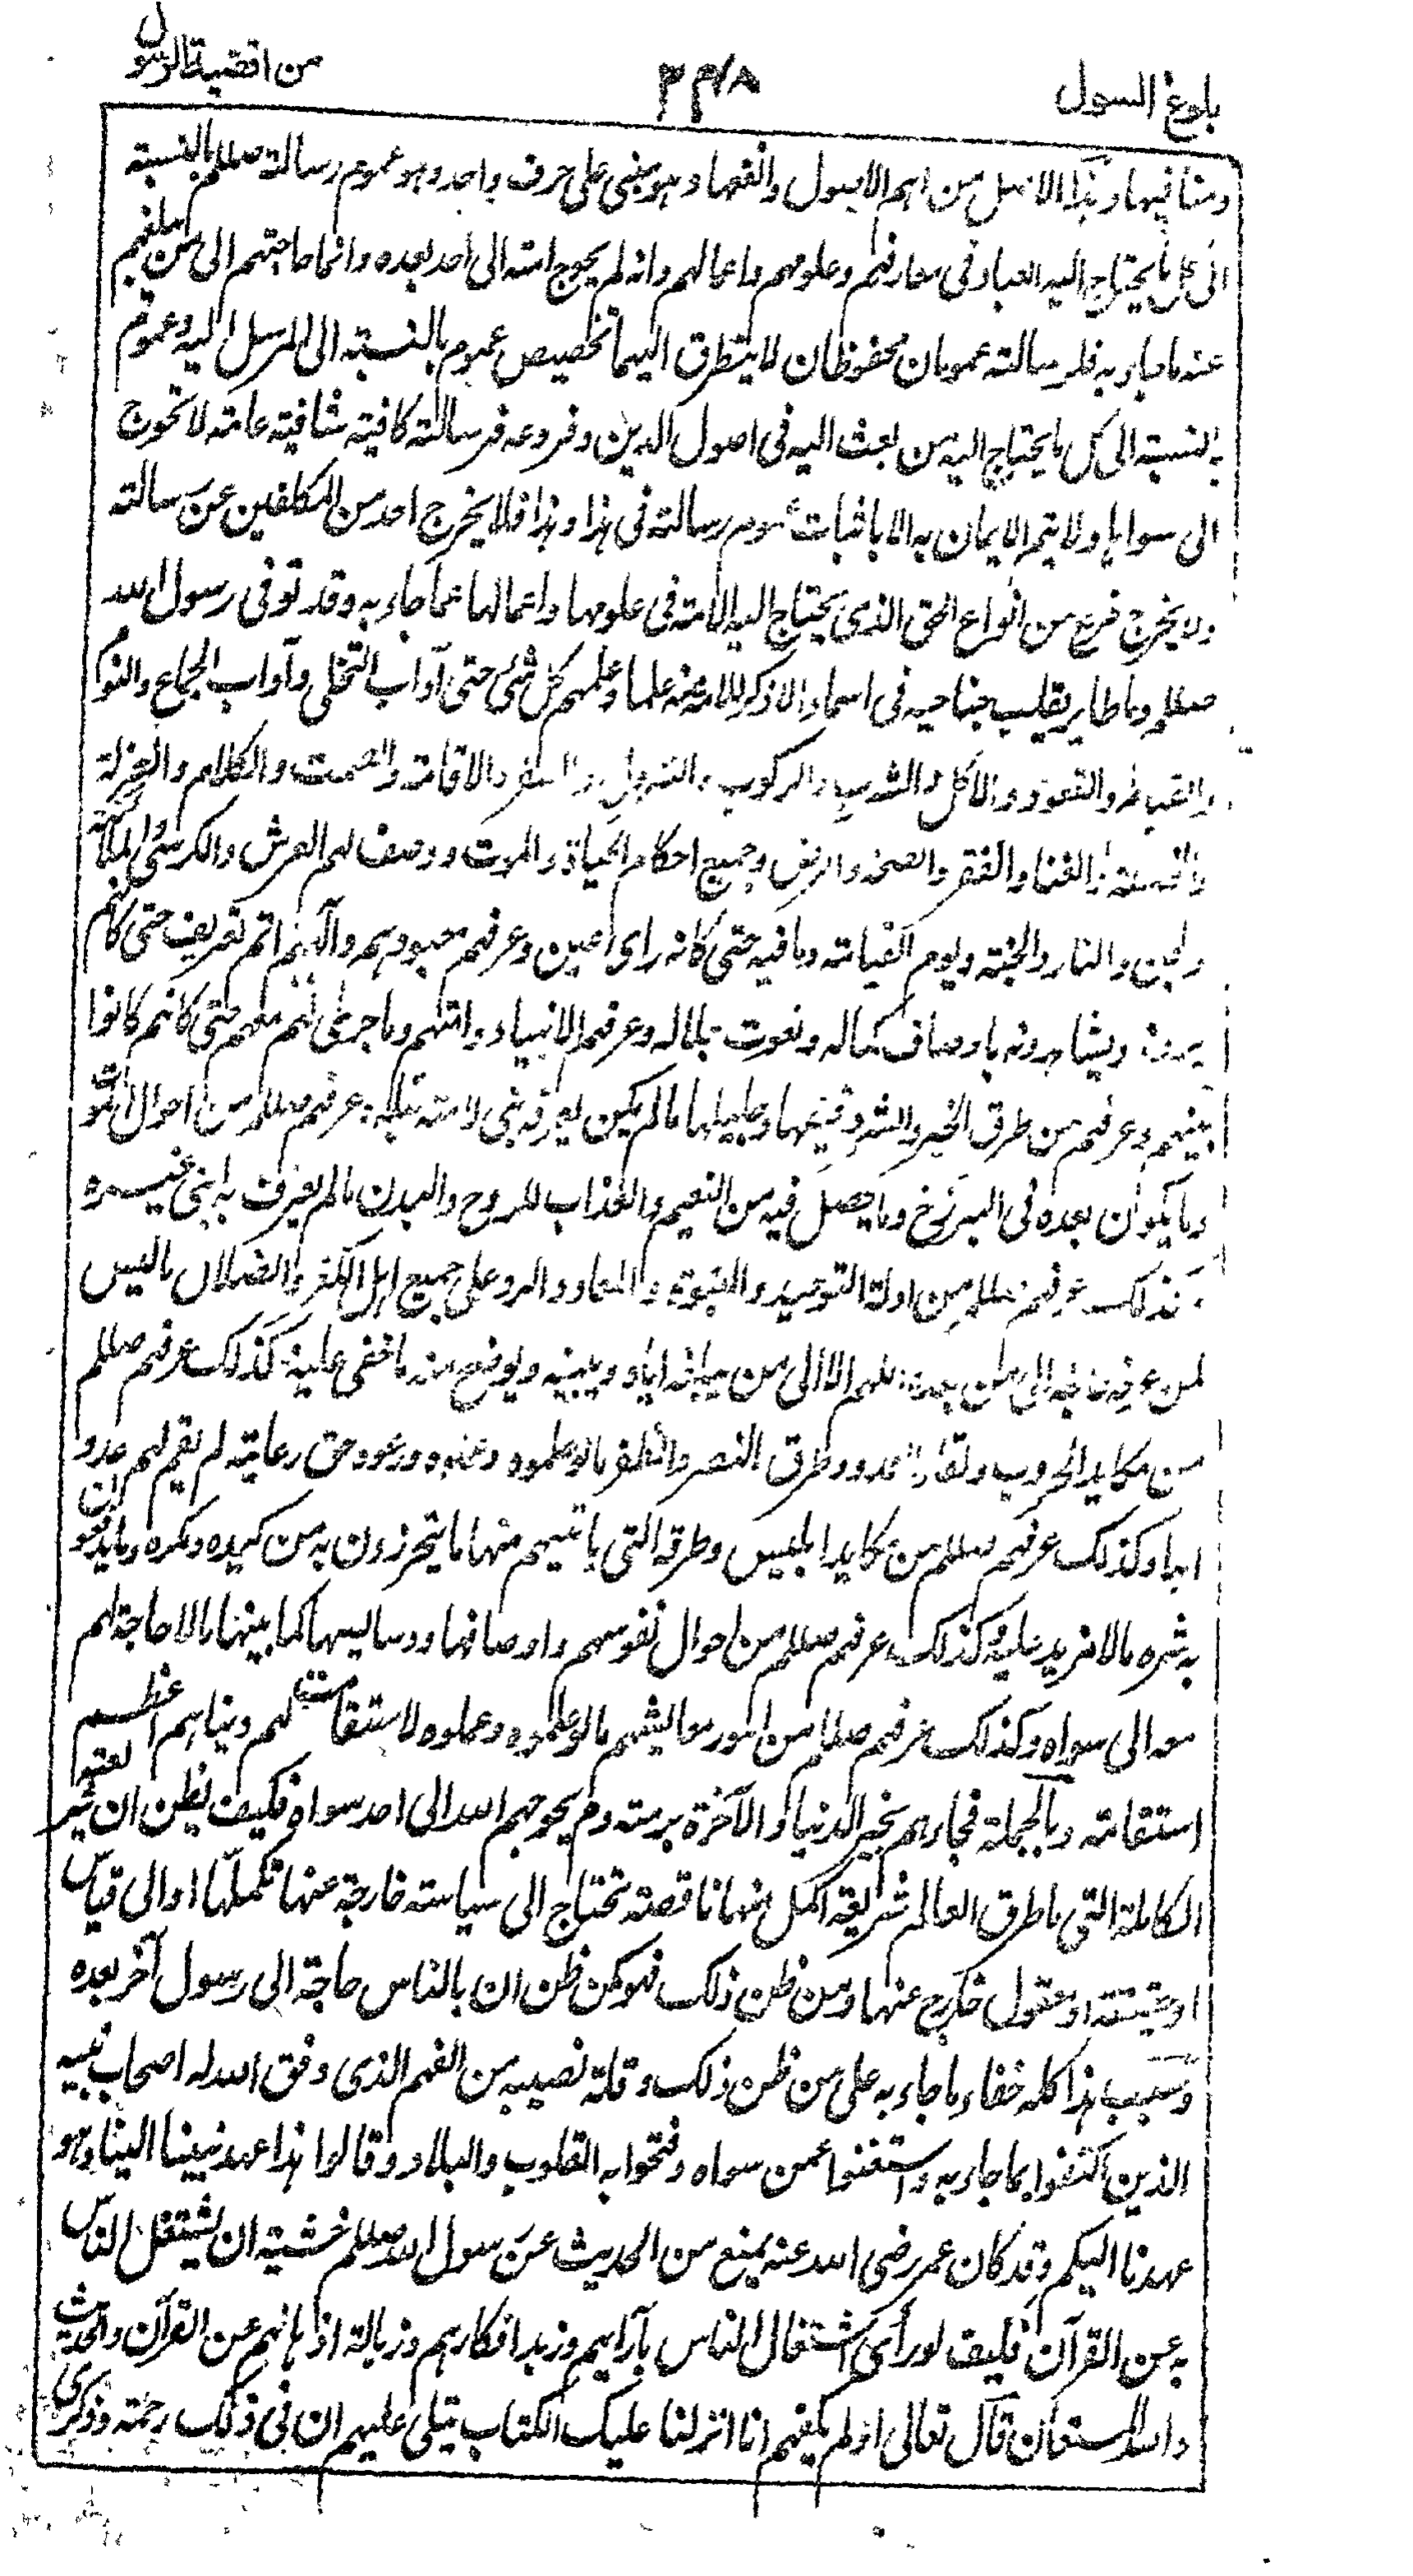 بلوغ السول ٣٣٨ من اقضية الرسول
ومنافيها وهذا الاصل من اهم الاصول وانفعها وهو مبنى على حرف واحد وهو عموم رسالته صللم بالنسبة
الى كل ما يحتاج اليه العباد فى معارفهم وعلومهم واعمالهم وانه لم يحوج امته الى احد بعده وانما حاجتهم الى من يبلغهم
عنه ما جاء به فلرسالته عمومان محفوظان لا يتطرق اليهما تخصيص عموم بالنسبة الى المرسل اليه وعموم
بالنسبة الى كل ما يحتاج اليه من بعث اليه فى اصول الدين وفروعه فرسالته كافية شافية عامة لا تحوج
الى سواها ولا يتم الايمان به الا باثبات عموم رسالته فى هذا وهذا فلا يخرج احد من المكلفين عن رسالته
ولا يخرج فرع من انواع الحق الذى يحتاج اليه الامة فى علومها واعمالها عما جاء به وقد توفى رسول الله
صللم وما طاير يقلب جناحيه فى السماء الا ذكر للامة منه علما وعلمهم كل شئ حتى آداب التخلى وآداب الجماع والنوم
والقيام والقعود والاكل والشرب والركوب والنزول والسفر والاقامة والصمت والكلام والعزلة
والغنا والفقر والصحة والمرض وجميع احكام الحياة والموت ووصف لهم العرش والكرسى والملائكة
والجن والنار والجنة ويوم القيامة وما فيه حتى كانه راى عين وعرفهم معبودهم وآلههم اتم تعريف حتى كانهم
يرونه ويشاهدونه باوصاف كماله ونعوت جلاله وعرفهم الانبياء وامتهم وما جرى لهم معهم حتى كانهم كانوا
بينهم وعرفهم من طرق الخير والشر دقيقها وجليلها ما لم يكن يعرفه نبى لامته قبله وعرفهم صللم من احوال الموت
وما يكون بعده فى البرزخ وما يحصل فيه من النعيم والعذاب للروح والبدن ما لم يعرف به نبى غيره
وكذلك عرفهم صللم من ادلة التوحيد والنبوة والمعاد والرد على جميع اهل الكفر والضلال ما ليس
لمن عرفه حاجة الى من بعده اللهم الا الى من يبلغه اياه ويبينه ويوضح منه ما خفى عليه وكذلك عرفهم صللم
من مكايد الحروب ولقاء العدو وطرق النصر والظفر ما لو علموه وعقلوه ورعوه حق رعايته لم يقم لهم عدو
ابدا وكذلك عرفهم صللم من مكايد ابليس وطرقه التى ياتيهم منها ما يتحرزون به من كيده ومكره وما يدفعون
به شره ما لا مزيد عليه وكذلك عرفهم صللم من احوال نفوسهم واوصافها ودسايسها كما بينها ما لا حاجة لهم
معه الى سواه وكذلك عرفهم صللم من امور معايشهم ما لو علموه وعملوه لاستقامت لهم دنياهم اعظم
استقامة وبالجملة فجاءهم بخير الدنيا والآخرة برمته ولم يحوجهم الله الى احد سواه فكيف يظن ان شريعته
الكاملة التى ما طرق العالم شريعة اكمل منها ناقصة تحتاج الى سياسة خارجة عنها تكملها او الى قياس
او حقيقة او معقول خارج عنها ومن ظن ذلك فهو كمن ظن ان بالناس حاجة الى رسول آخر بعده
وسبب هذا كله خفاء ما جاء به على من ظن ذلك وقلة نصيبه من الفهم الذى وفق الله له اصحاب نبيه
الذين اكتفوا بما جاء به واستغنوا عمن سواه وفتحوا به القلوب والبلاد وقالوا هذا عهد نبينا الينا وهو
عهدنا اليكم وقد كان عمر رضى الله عنه يمنع من الحديث عن رسول الله صللم خشية ان يشتغل الناس
به عن القرآن فكيف لو رأى اشتغال الناس بآرايهم وزبد افكارهم وزبالة اذهانهم عن القرآن والحديث
والله المستعان قال تعالى اولم يكفهم انا انزلنا عليك الكتاب يتلى عليهم ان فى ذلك رحمة وذكرى